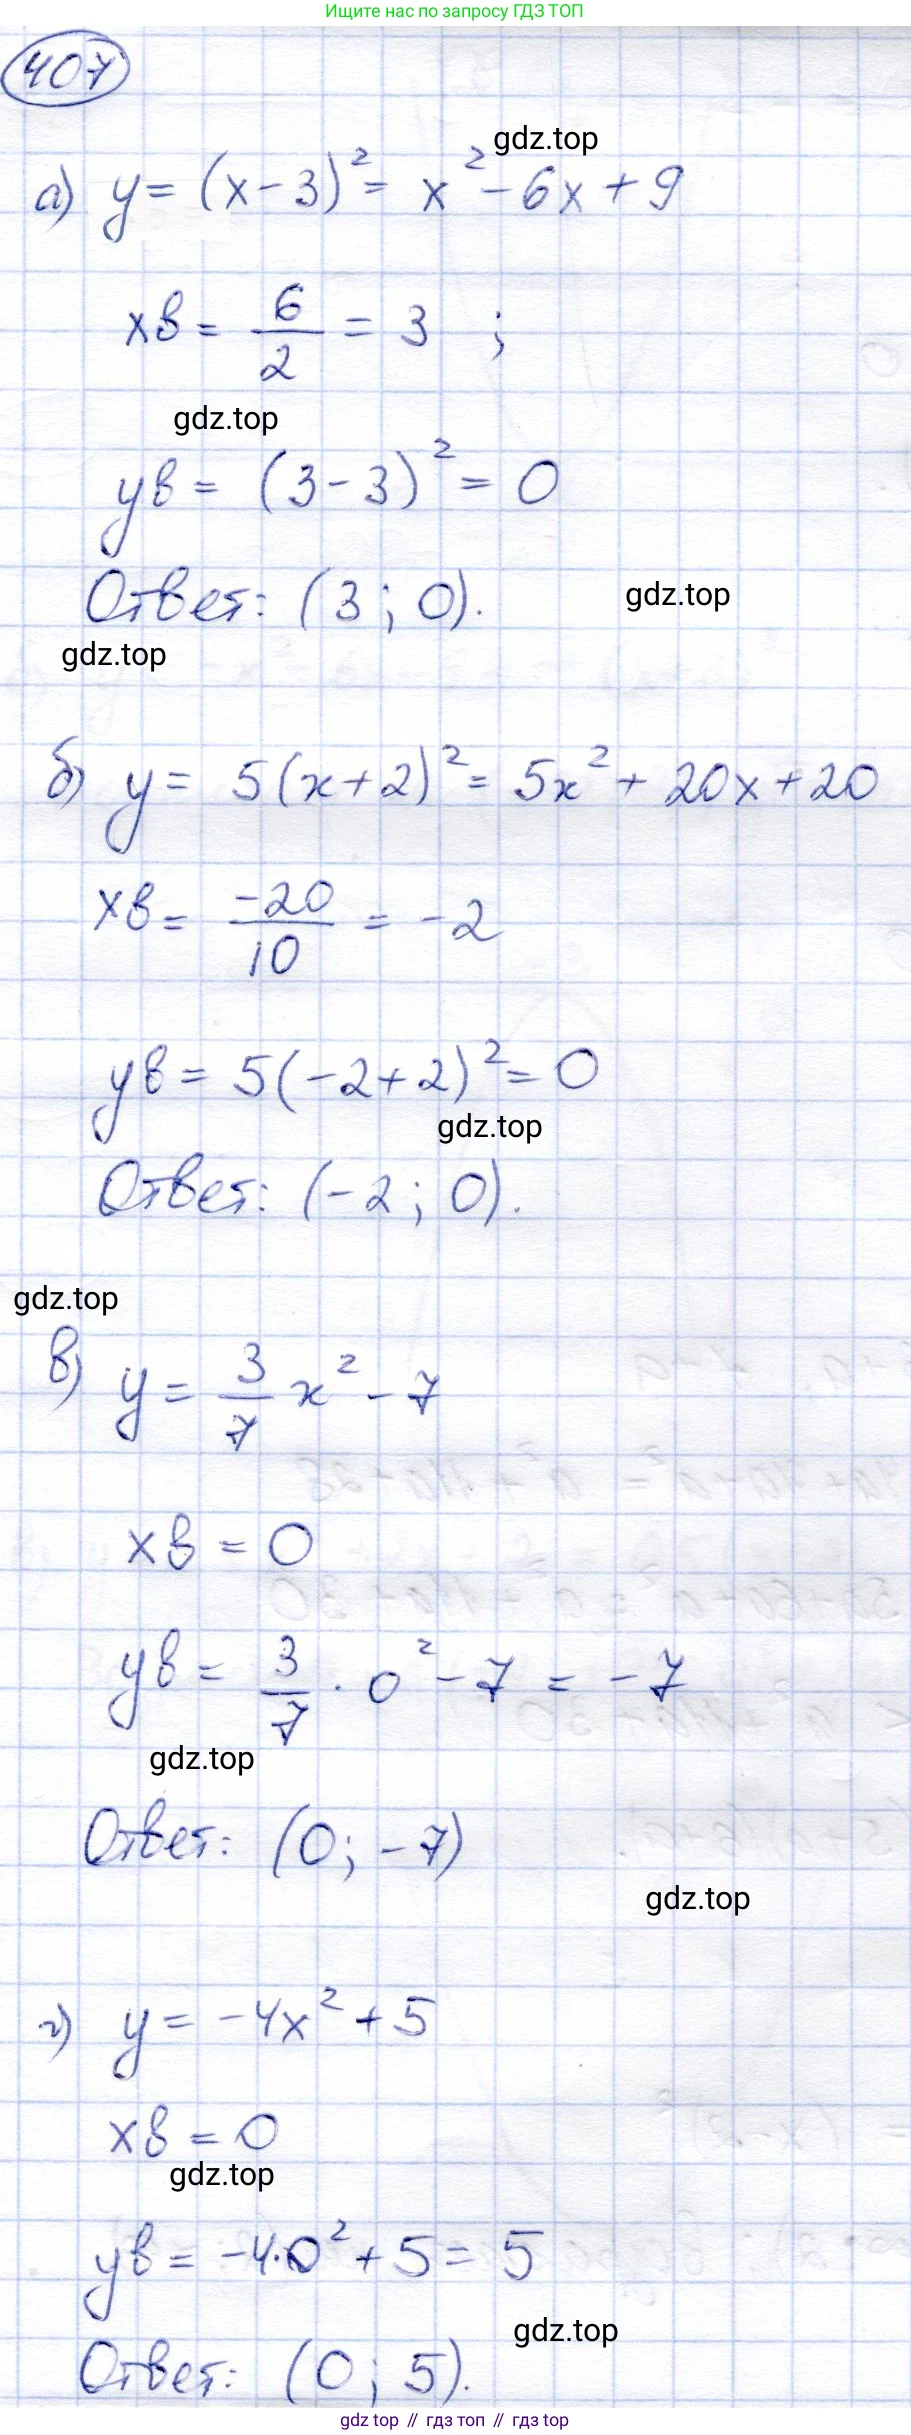 Ищите нас по запросу ГДЗ ТОП
407
gdz.top
а) y = (x - 3)² = x² - 6x + 9
xв = 6/2 = 3 ;
gdz.top
yв = (3 - 3)² = 0
Ответ: (3 ; 0).
gdz.top
gdz.top
б) y = 5(x + 2)² = 5x² + 20x + 20
xв = -20/10 = -2
yв = 5(-2 + 2)² = 0
gdz.top
Ответ: (-2 ; 0).
gdz.top
в) y = 3/7 x² - 7
xв = 0
yв = 3/7 · 0² - 7 = -7
gdz.top
Ответ: (0 ; -7)
gdz.top
г) y = -4x² + 5
xв = 0
gdz.top
yв = -4·0² + 5 = 5
gdz.top
Ответ: (0 ; 5).
gdz top // гдз топ // gdz top